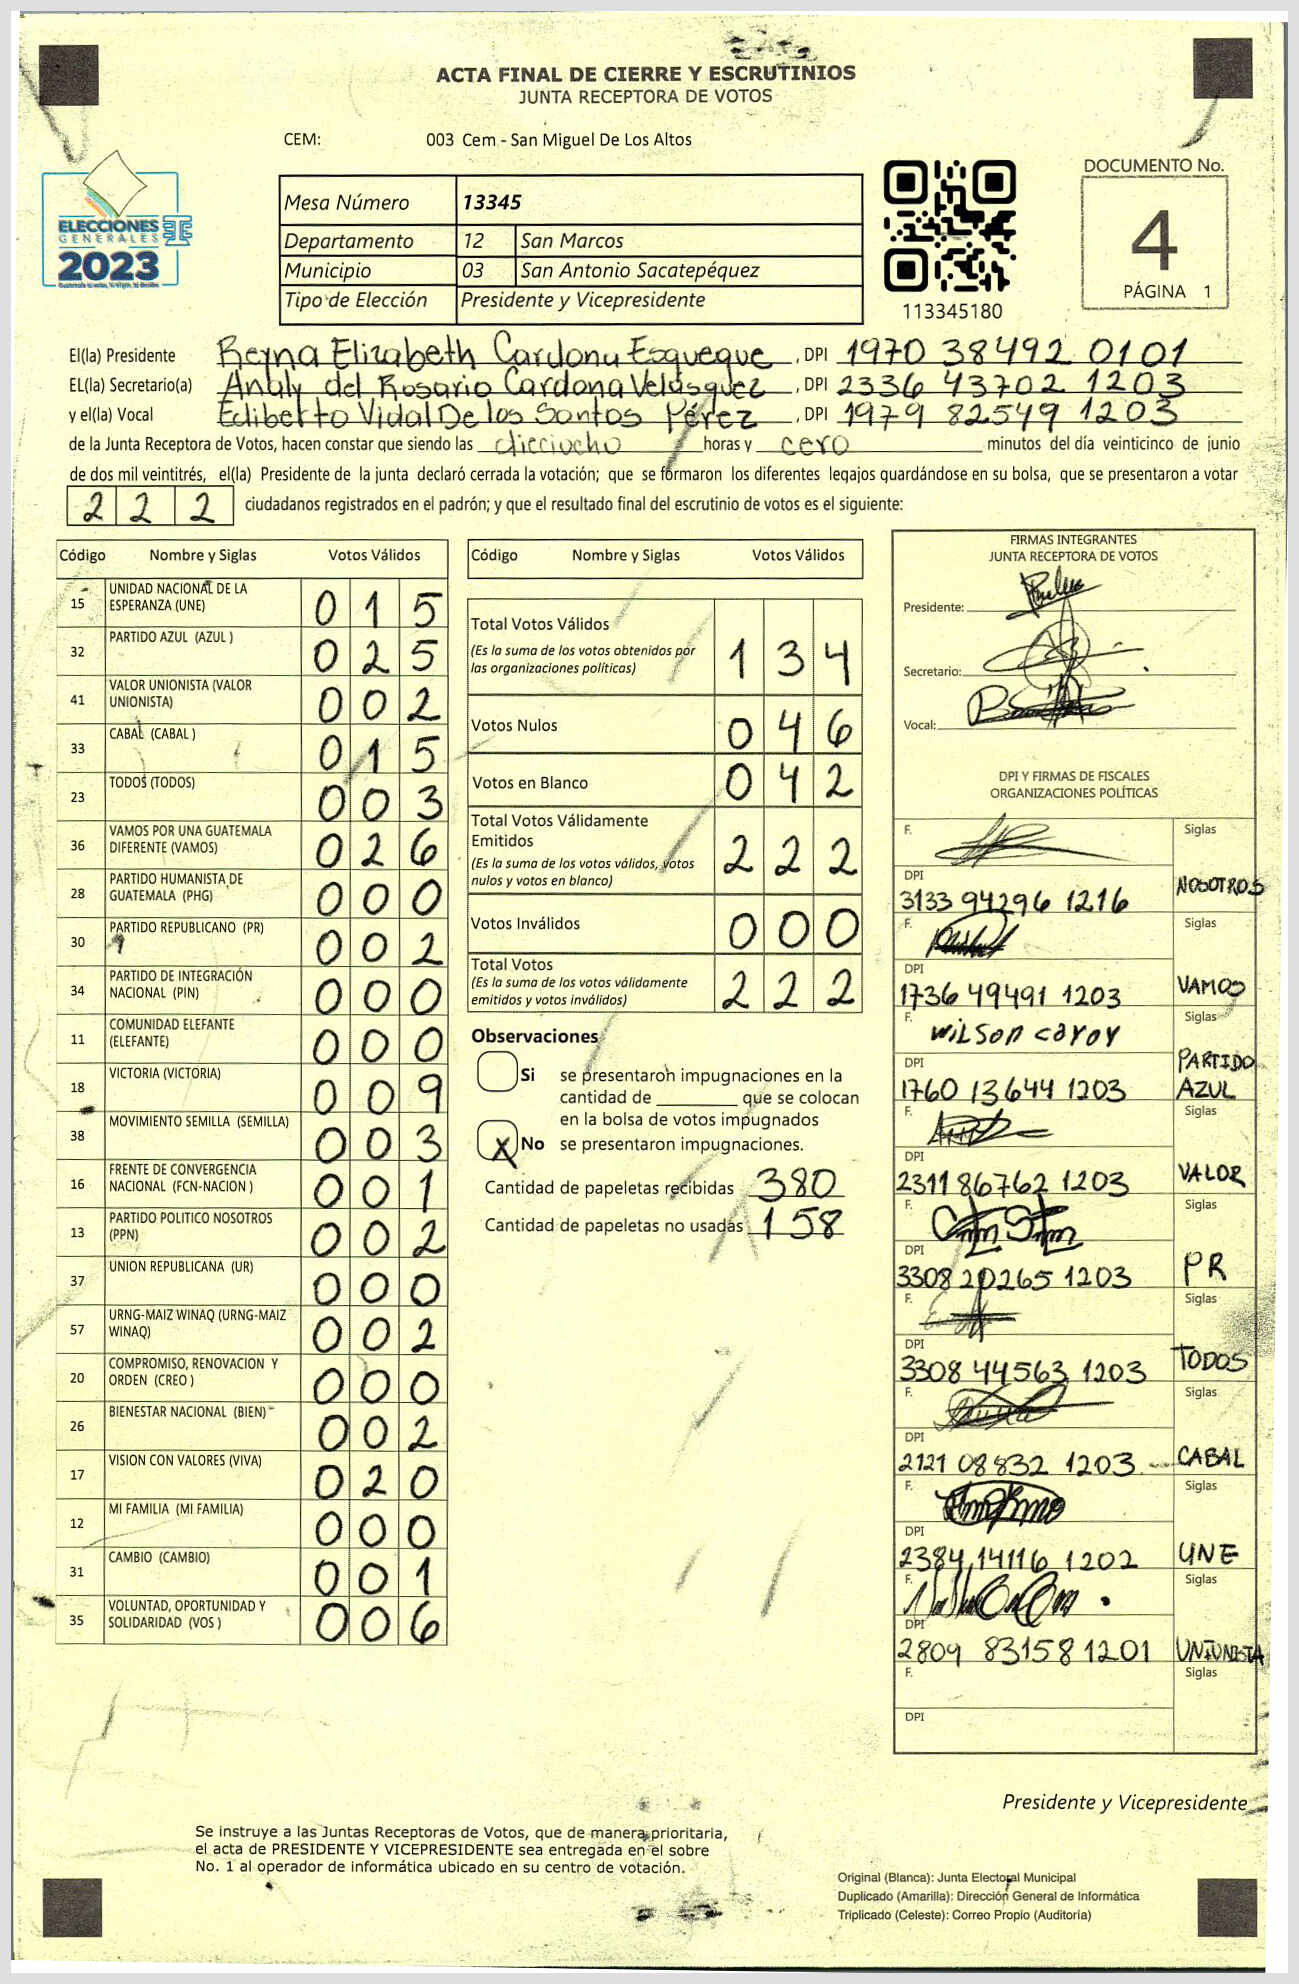 ACTA FINAL DE CIERRE Y ESCRUTINIOS
JUNTA RECEPTORA DE VOTOS
CEM: 003 Cem - San Miguel De Los Altos
ELECCIONES
GENERALES
2023
Mesa Número 13345
Departamento 12 San Marcos
Municipio 03 San Antonio Sacatepéquez
Tipo de Elección Presidente y Vicepresidente
113345180
DOCUMENTO No.
4
PÁGINA 1
El(la) Presidente Reyna Elizabeth Cardona Esqueque , DPI 1970 38492 0101
EL(la) Secretario(a) Analy del Rosario Cardona Velásquez , DPI 2336 43702 1203
y el(la) Vocal Ediberto Vidal De los Santos Pérez , DPI 1979 82549 1203
de la Junta Receptora de Votos, hacen constar que siendo las dieciocho horas y cero minutos del día veinticinco de junio
de dos mil veintitrés, el(la) Presidente de la junta declaró cerrada la votación; que se formaron los diferentes legajos quardándose en su bolsa, que se presentaron a votar
2 2 2 ciudadanos registrados en el padrón; y que el resultado final del escrutinio de votos es el siguiente:
Código Nombre y Siglas Votos Válidos
15 UNIDAD NACIONAL DE LA ESPERANZA (UNE) 0 1 5
32 PARTIDO AZUL (AZUL ) 0 2 5
41 VALOR UNIONISTA (VALOR UNIONISTA) 0 0 2
33 CABAL (CABAL ) 0 1 5
23 TODOS (TODOS) 0 0 3
36 VAMOS POR UNA GUATEMALA DIFERENTE (VAMOS) 0 2 6
28 PARTIDO HUMANISTA DE GUATEMALA (PHG) 0 0 0
30 PARTIDO REPUBLICANO (PR) 0 0 2
34 PARTIDO DE INTEGRACIÓN NACIONAL (PIN) 0 0 0
11 COMUNIDAD ELEFANTE (ELEFANTE) 0 0 0
18 VICTORIA (VICTORIA) 0 0 9
38 MOVIMIENTO SEMILLA (SEMILLA) 0 0 3
16 FRENTE DE CONVERGENCIA NACIONAL (FCN-NACION ) 0 0 1
13 PARTIDO POLITICO NOSOTROS (PPN) 0 0 2
37 UNION REPUBLICANA (UR) 0 0 0
57 URNG-MAIZ WINAQ (URNG-MAIZ WINAQ) 0 0 2
20 COMPROMISO, RENOVACION Y ORDEN (CREO ) 0 0 0
26 BIENESTAR NACIONAL (BIEN) 0 0 2
17 VISION CON VALORES (VIVA) 0 2 0
12 MI FAMILIA (MI FAMILIA) 0 0 0
31 CAMBIO (CAMBIO) 0 0 1
35 VOLUNTAD, OPORTUNIDAD Y SOLIDARIDAD (VOS ) 0 0 6
Código Nombre y Siglas Votos Válidos
Total Votos Válidos
(Es la suma de los votos obtenidos por
las organizaciones políticas) 1 3 4
Votos Nulos 0 4 6
Votos en Blanco 0 4 2
Total Votos Válidamente
Emitidos
(Es la suma de los votos válidos, votos
nulos y votos en blanco) 2 2 2
Votos Inválidos 0 0 0
Total Votos
(Es la suma de los votos válidamente
emitidos y votos inválidos) 2 2 2
Observaciones
Si se presentaron impugnaciones en la
cantidad de ________ que se colocan
en la bolsa de votos impugnados
X No se presentaron impugnaciones.
Cantidad de papeletas recibidas 380
Cantidad de papeletas no usadas 158
FIRMAS INTEGRANTES
JUNTA RECEPTORA DE VOTOS
Presidente:
Secretario:
Vocal:
DPI Y FIRMAS DE FISCALES
ORGANIZACIONES POLÍTICAS
F. Siglas
DPI
3133 94296 1216 NOSOTROS
F. Siglas
DPI
1736 49491 1203 VAMOS
F. Siglas
WILSON
DPI
1760 13644 1203 PARTIDO AZUL
F. Siglas
DPI
2311 86762 1203 VALOR
F. Siglas
DPI
3308 20265 1203 PR
F. Siglas
DPI
3308 44563 1203 TODOS
F. Siglas
DPI
2121 08832 1203 CABAL
F. Siglas
DPI
2384 14116 1202 UNE
F. Siglas
DPI
2809 83158 1201 UNIONISTA
F. Siglas
DPI
Presidente y Vicepresidente
Se instruye a las Juntas Receptoras de Votos, que de manera prioritaria,
el acta de PRESIDENTE Y VICEPRESIDENTE sea entregada en el sobre
No. 1 al operador de informática ubicado en su centro de votación.
Original (Blanca): Junta Electoral Municipal
Duplicado (Amarilla): Dirección General de Informática
Triplicado (Celeste): Correo Propio (Auditoría)